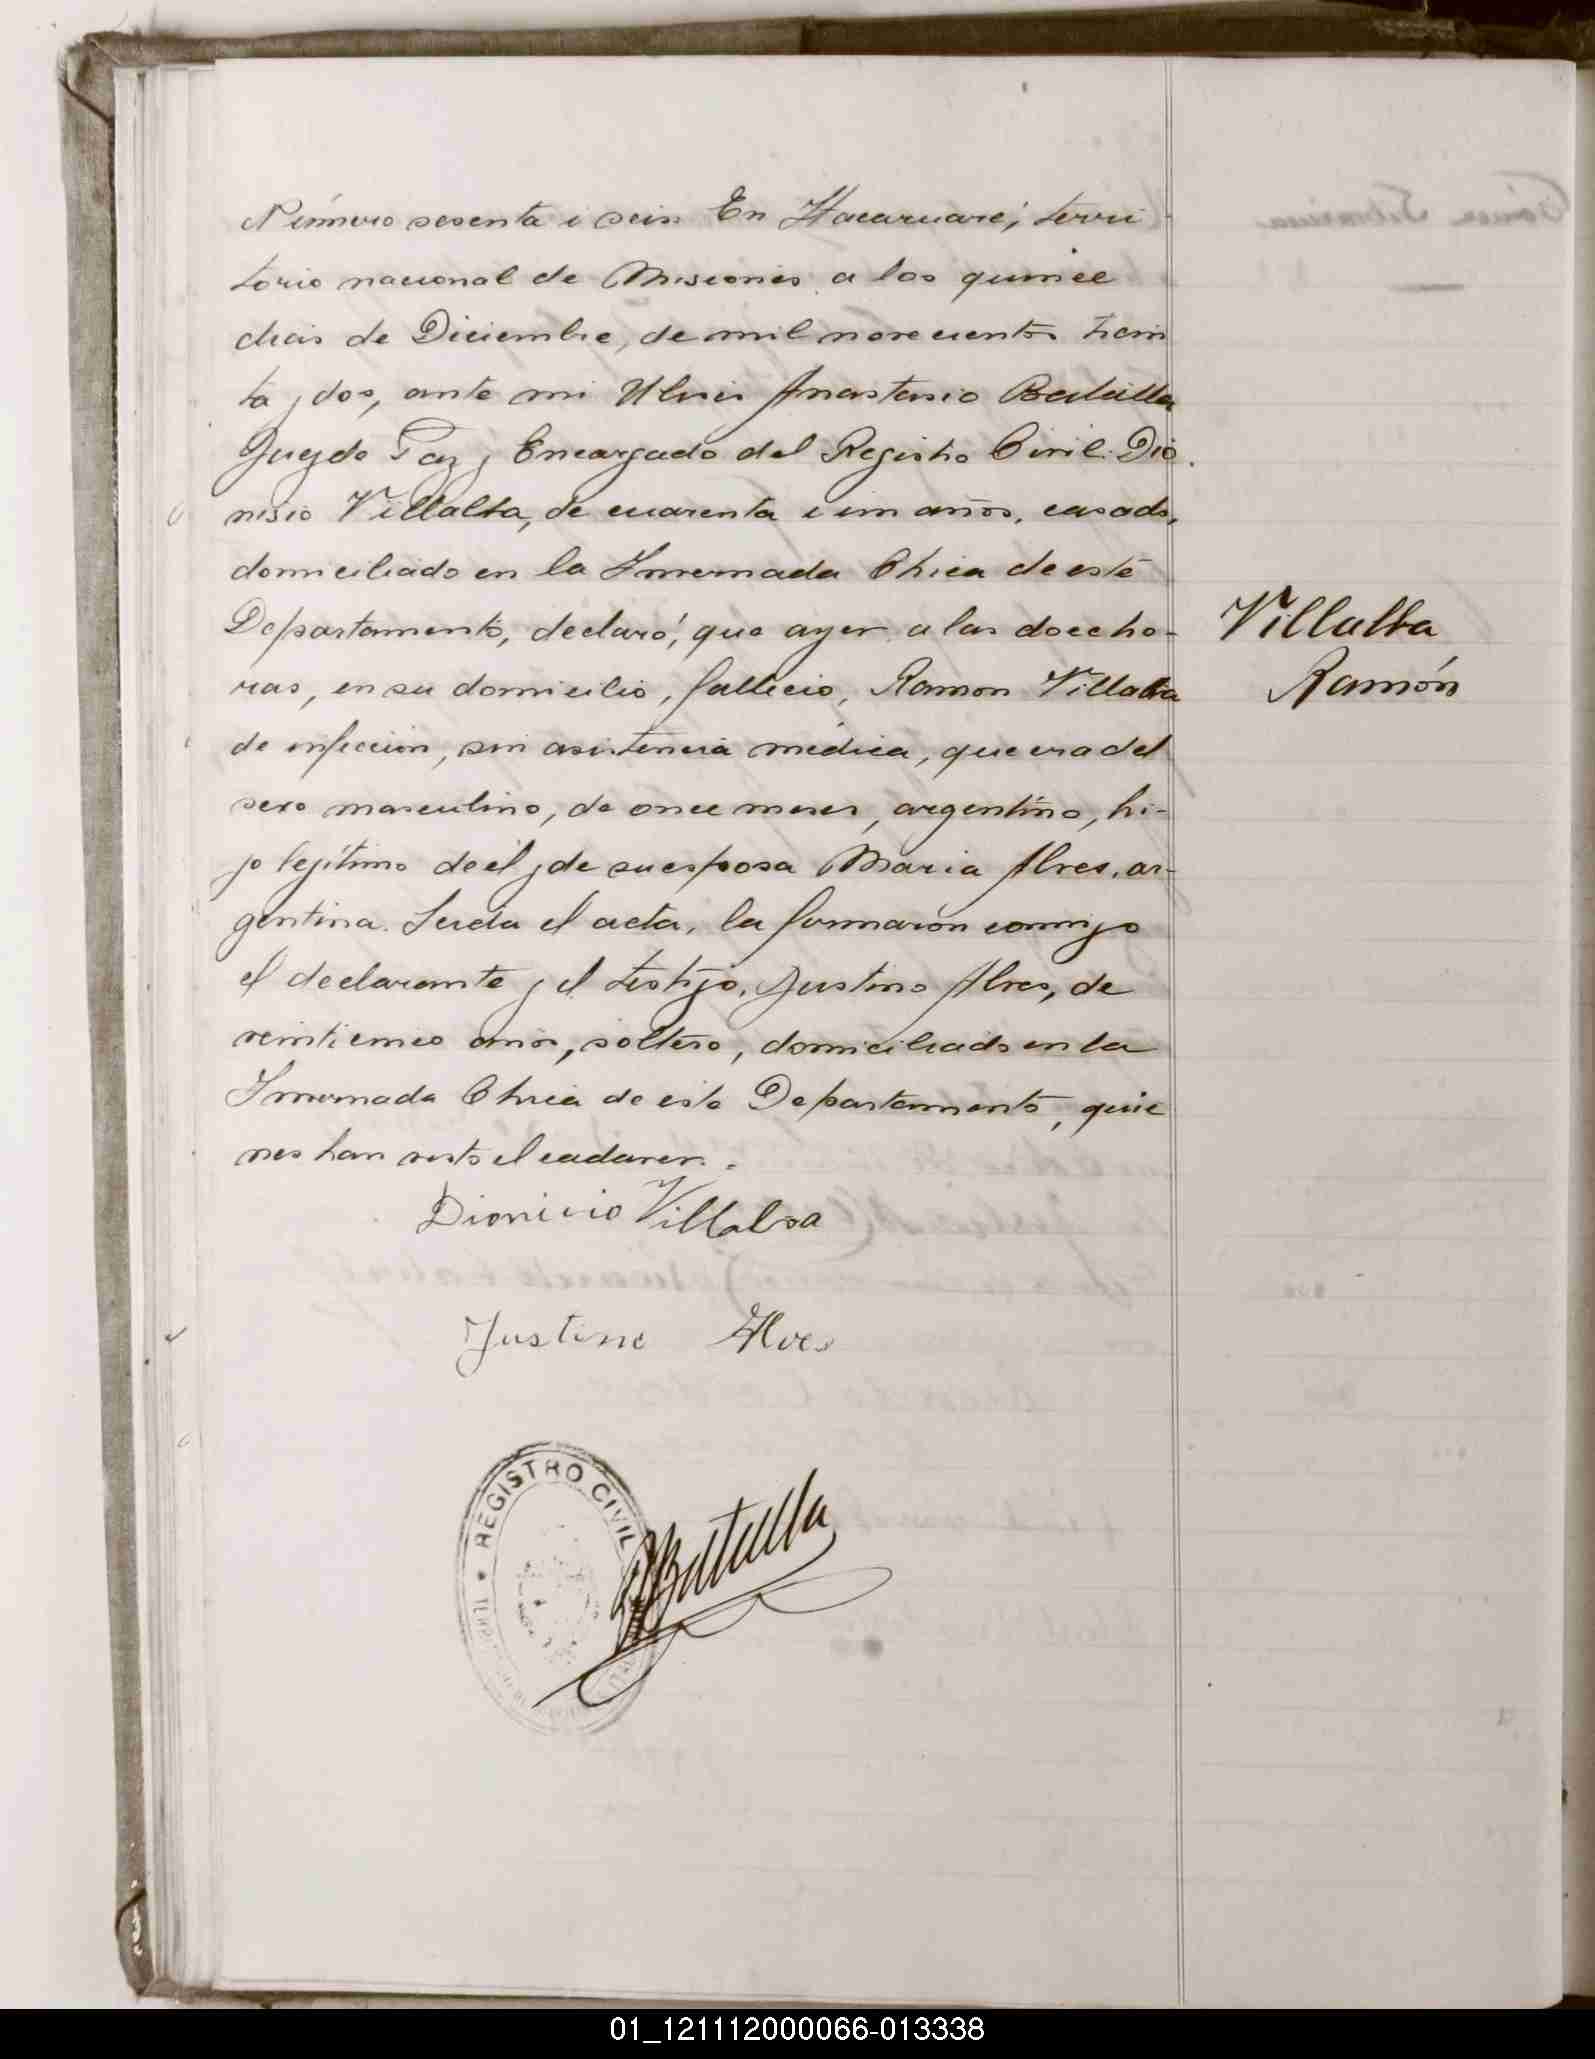 Número sesenta i seis En Itacaruaré, terri
torio nacional de Misiones a los quince
dias de Diciembre, de mil novecientos trein
ta y dos, ante mi Anastasio Batalla
Juez de Paz y Encargado del Registro Civil. Dio
nisio Villalba, de cuarenta i un años, casado,
domiciliado en la Invernada Chica de este
Departamento, declaró, que ayer a las doce ho-
ras, en su domicilio, fallecio, Ramon Villalba
de infeccion, sin asistencia médica, que era del
sexo masculino, de once meses, argentino, hi-
jo lejítimo de el y de su esposa Maria Alves, ar-
gentina. Leida el acta, la firmaron conmigo
el declarante y el testigo, Justino Alves, de
veinticinco años, soltero, domiciliado en la
Invernada Chica de este Departamento, quie
nes han visto el cadaver.
Villalba
Ramón
Dionicio Villalba
Justino Alves
REGISTRO CIVIL
Batalla
01_121112000066-013338